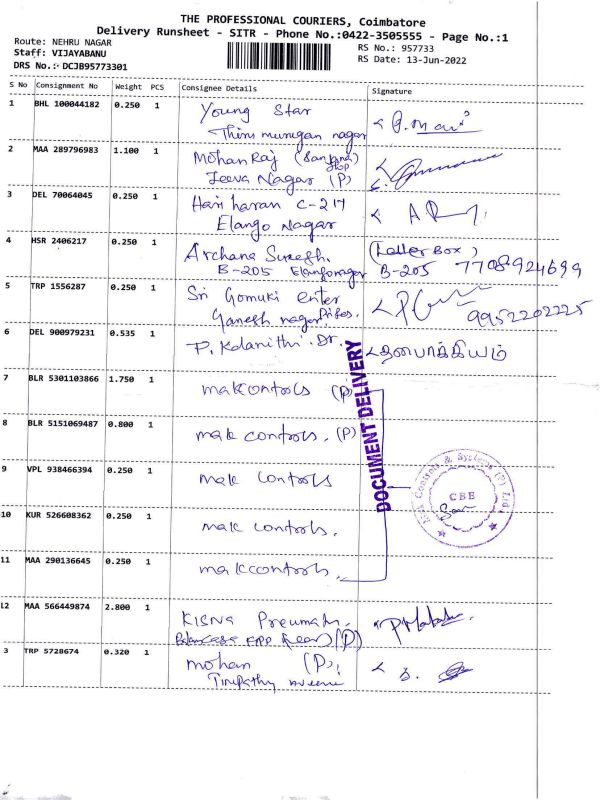 THE PROFESSIONAL COURIERS, Coimbatore
Delivery Runsheet - SITR - Phone No.:0422-3505555 - Page No.:1
Route: NEHRU NAGAR
Staff: VIJAYABANU
DRS No.: DCJB95773301
RS No.: 957733
RS Date: 13-Jun-2022
S No Consignment No Weight PCS Consignee Details Signature
1 BHL 100044182 0.250 1 Young Star
Thirumurugan nagar
2 MAA 289796983 1.100 1 MohanRaj
Jeeva Nagar (P)
3 DEL 70064045 0.250 1 Hari haran C-217
Elango Nagar
4 HSR 2406217 0.250 1 Archana Suresh. (Letter Box)
B-205 Elangonagar B-205 7708924699
5 TRP 1556287 0.250 1 Sri Gomuki enter
Ganesh nagar 9952202225
6 DEL 900979231 0.535 1 P. Kalanithi. Dr. தனபாக்கியம்
7 BLR 5301103866 1.750 1 makcontrols (P)
8 BLR 5151069487 0.800 1 mak controls. (P)
9 VPL 938466394 0.250 1 mak controls
10 KUR 526608362 0.250 1 mak controls.
11 MAA 290136645 0.250 1 makcontrols.
DOCUMENT DELIVERY
Mak Controls & Systems (P) Ltd
CBE
12 MAA 566449874 2.800 1 Kisna Pneumatic
(P)
3 TRP 5728674 0.320 1 mohan (P),
Tirupathy